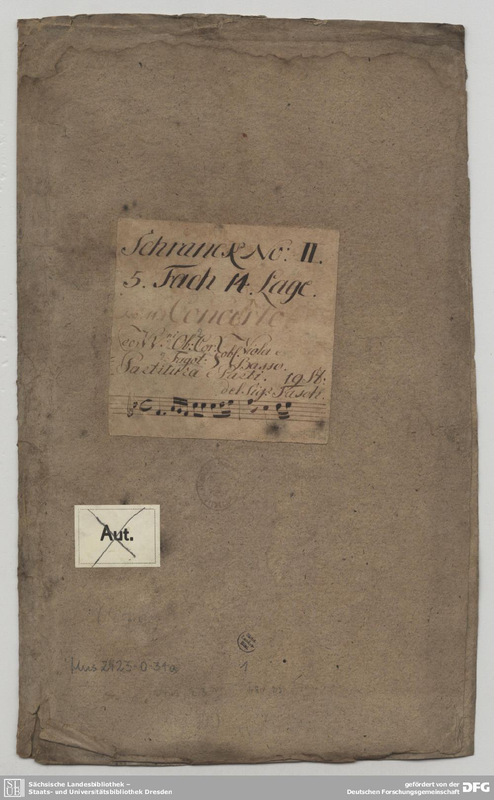 Schranck No: II.
5. Fach 14. Lage.
Concerto
Viola e
Fagot: Basso.
Partitura e Parti. 19 St.
del Sigr Fasch.
Aut.
Mus 2423-O-31a
1
Sächsische Landesbibliothek –
Staats- und Universitätsbibliothek Dresden
gefördert von der
Deutschen Forschungsgemeinschaft
DFG